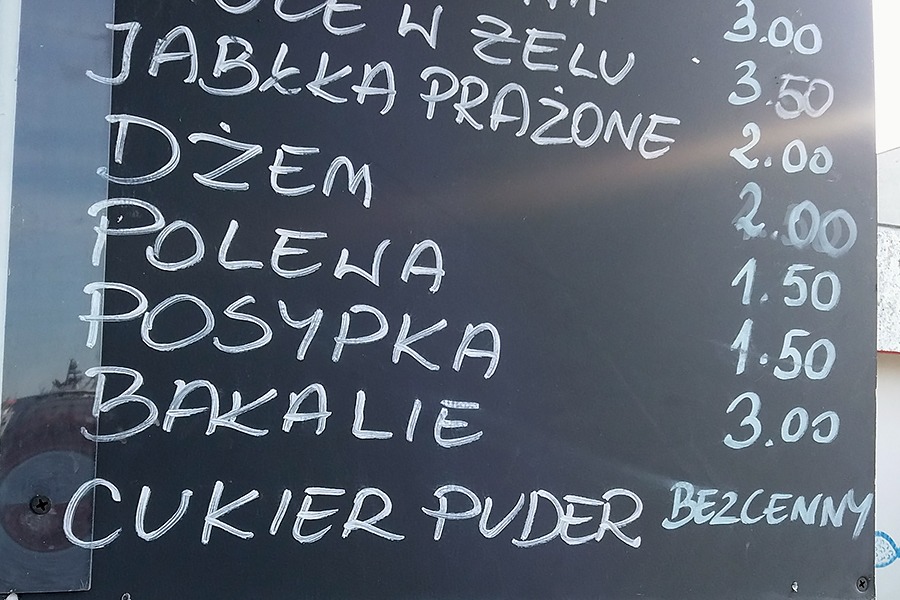 3.00
W ŻELU 3.50
JABŁKA PRAŻONE 2.00
DŻEM 2.00
POLEWA 1.50
POSYPKA 1.50
BAKALIE 3.00
CUKIER PUDER BEZCENNY